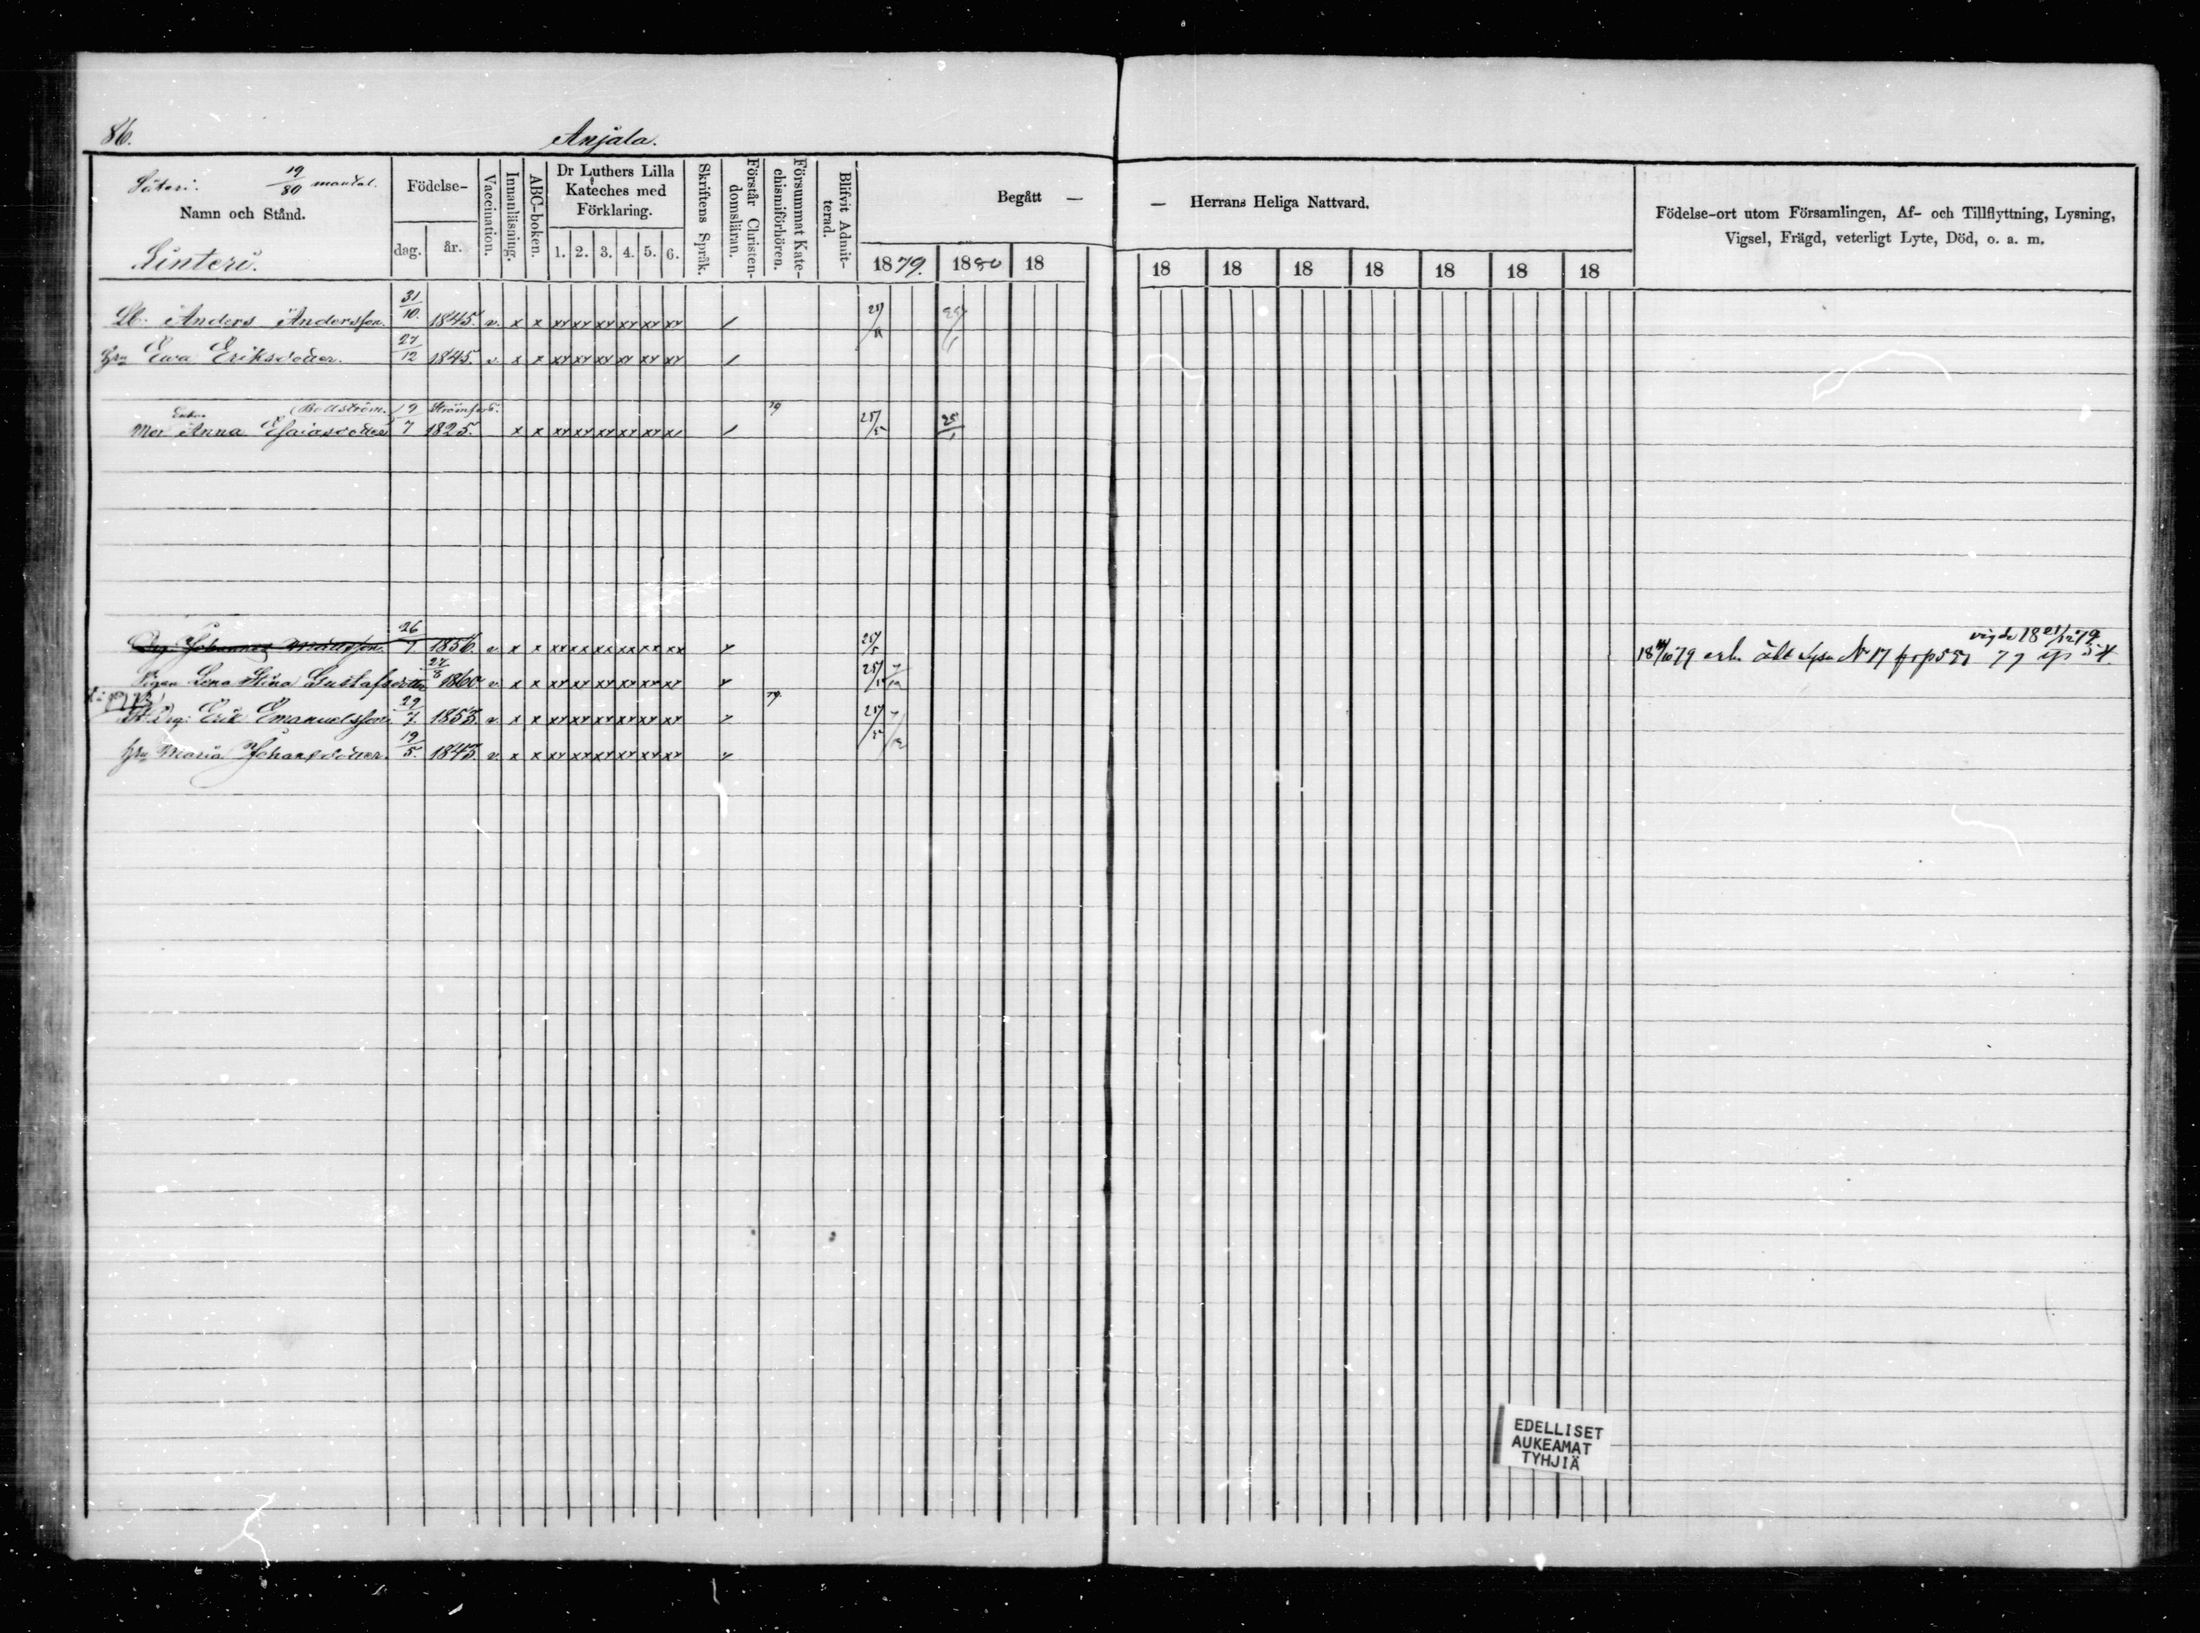 86.
Anjala.
Säteri. 19/80 mantal.
Namn och Stånd.
Sinteri.
Födelse-
dag. år.
Vaccination.
Innanläsning.
ABC-boken.
Dr Luthers Lilla
Kateches med
Förklaring.
1. 2. 3. 4. 5. 6.
Skriftens Språk.
Förstår Christen-
domsläran.
Försummat Kate-
chismiförhören.
Blifvit Admit-
terad.
Begått —
1879. 1880 18
— Herrans Heliga Nattvard.
18 18 18 18 18 18 18
Födelse-ort utom Församlingen, Af- och Tillflyttning, Lysning,
Vigsel, Frägd, veterligt Lyte, Död, o. a. m.
Anders Andersson. 31/10. 1845. v. x x xx xx xx xx xx xx /
Hru Ewa Eriksdotter. 27/12 1845. v. x x xx xx xx xx xx xx /
Enkan (Bollström.) Strömfors.
Mor Anna Esaiasdotter 9/7 1825. x x xx xx xx xx xx / 79 25/5 25/1
Drg. Johannes Mattsson. 26/7. 1856. v. x x xx xx xx xx xx xx 25/5
vigde 18 21/12 79
79 erh.
Pigan Lena Stina Gustafsdotter 27/8 1860. v. x x xx xx xx xx xx xx
Drg: Erik Emanuelsson. 29/7. 1853. v. x x xx xx xx xx xx xx 79. 25/5
Hru Maria Johansdotter. 19/5. 1843. v. x x xx xx xx xx xx xx
EDELLISET
AUKEAMAT
TYHJIÄ